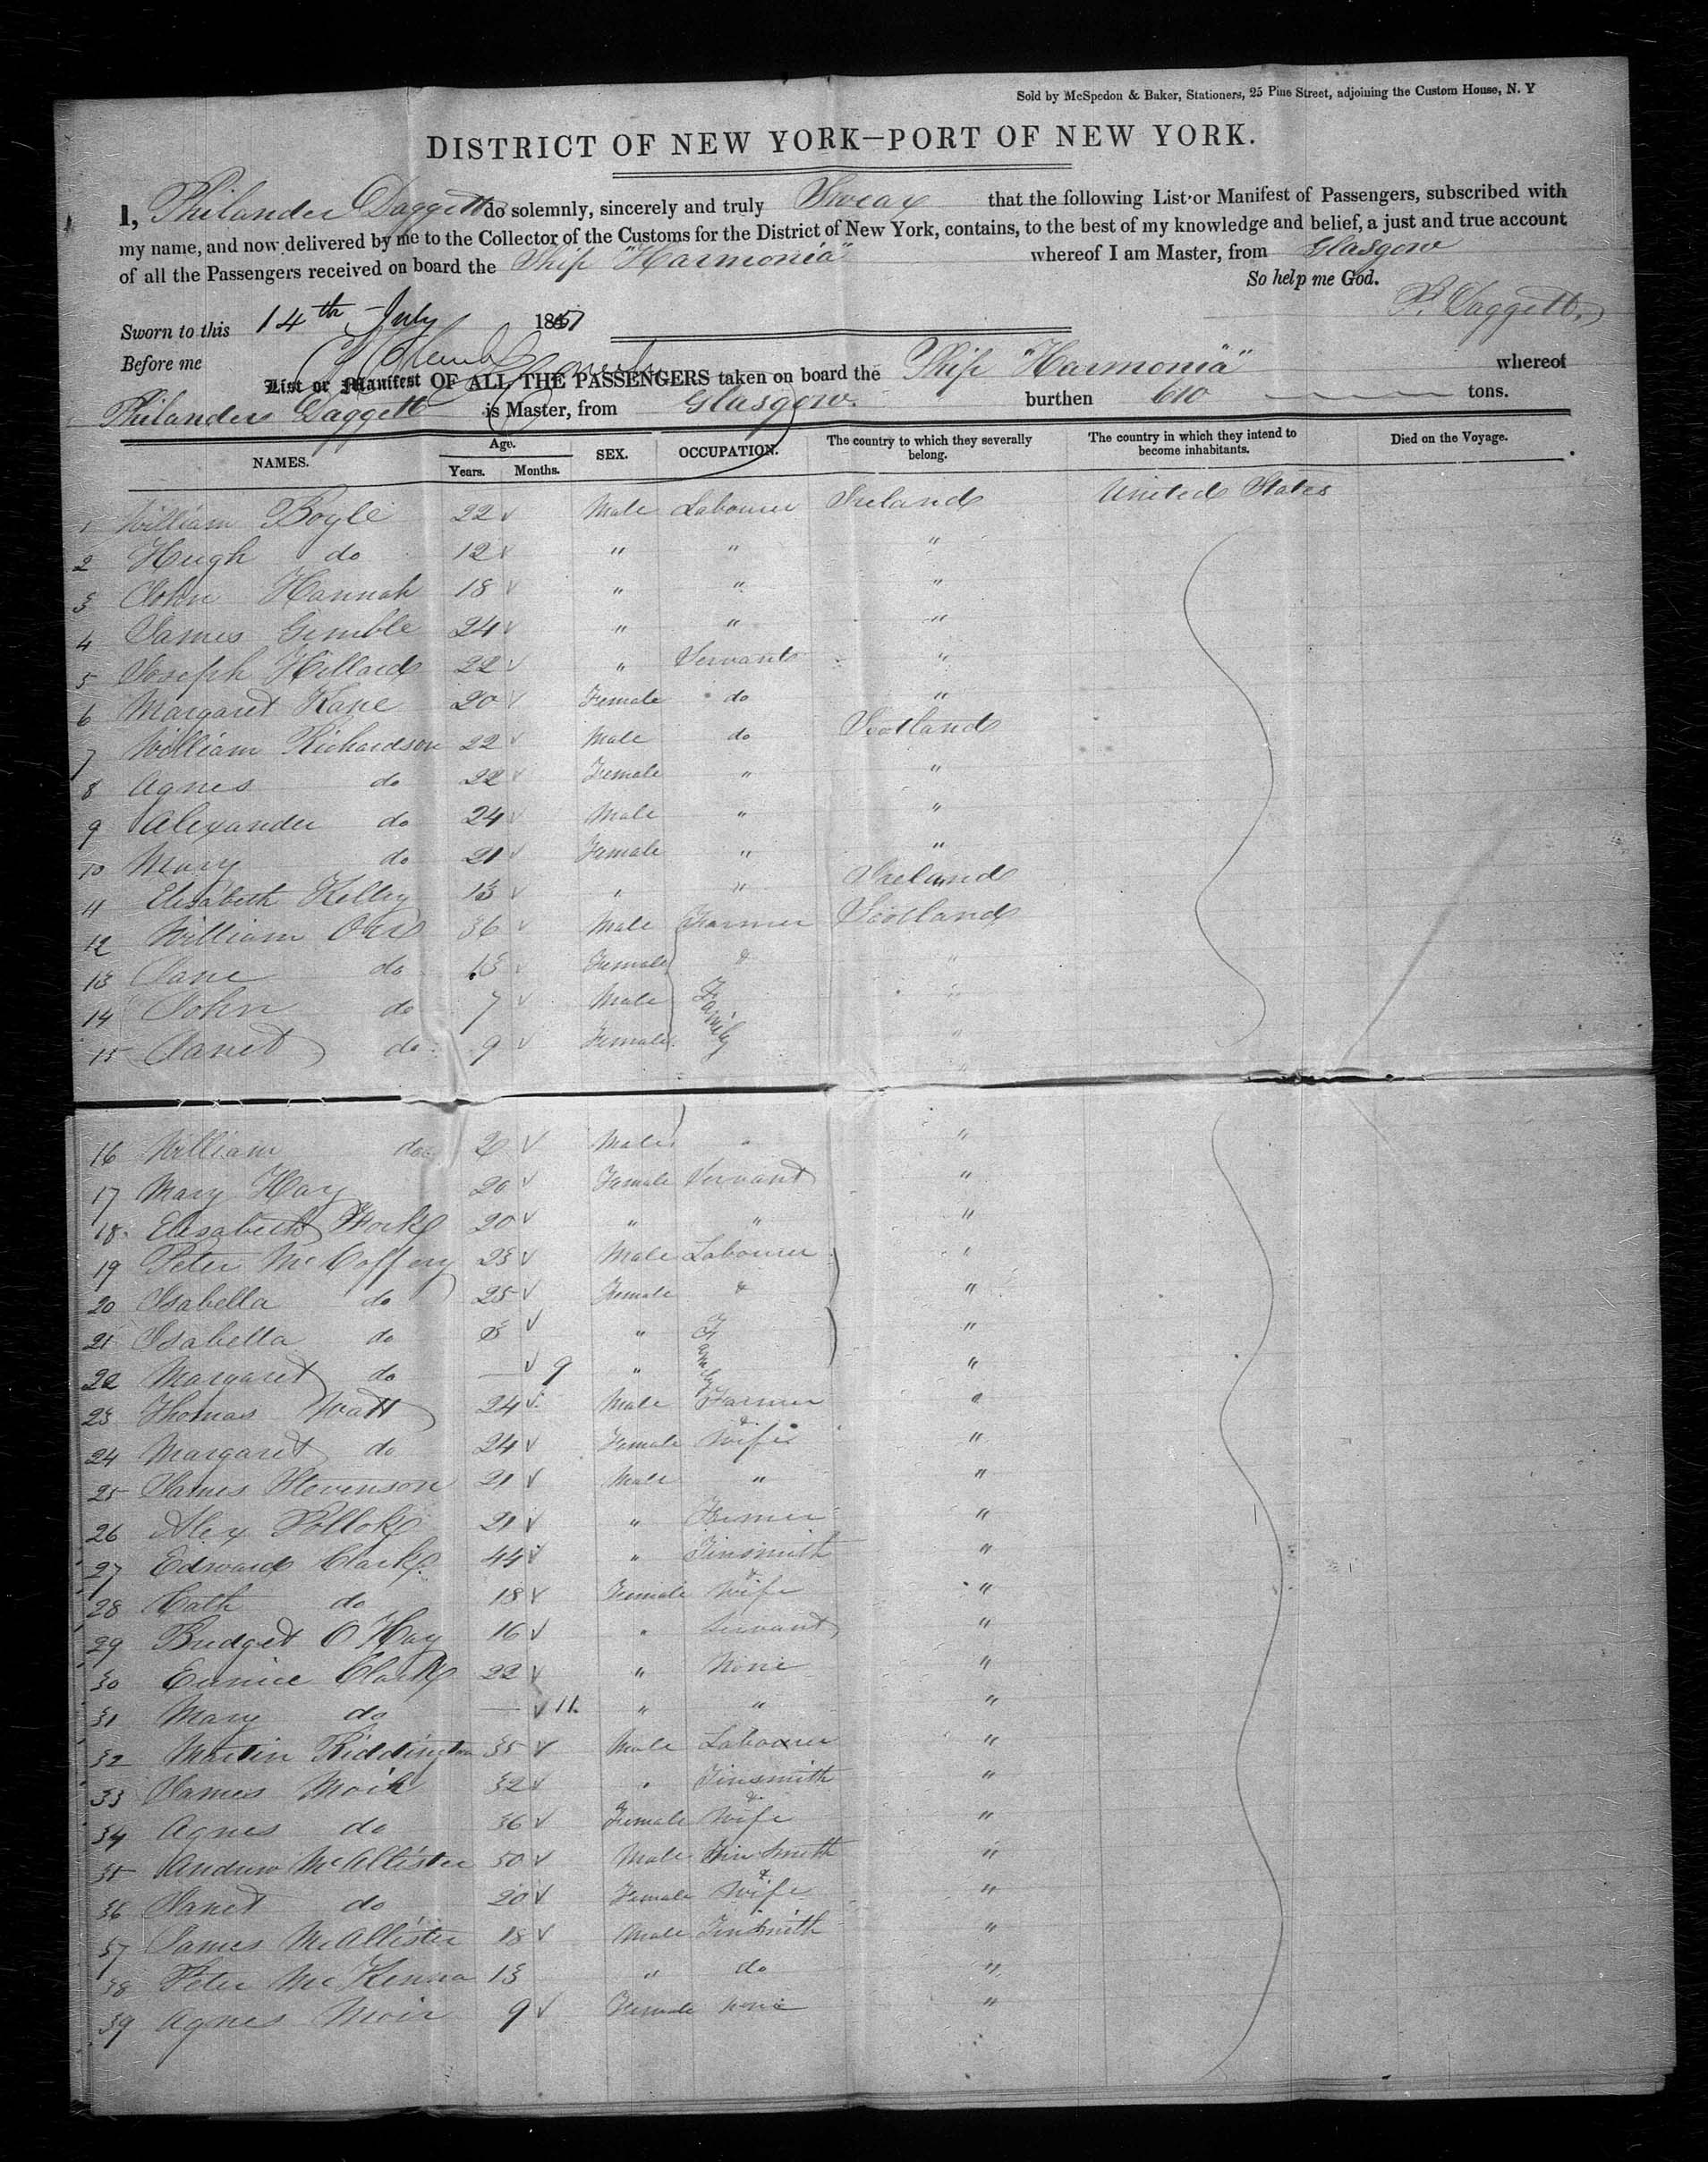 Sold by McSpedon & Baker, Stationers, 25 Pine Street, adjoining the Custom House, N. Y
DISTRICT OF NEW YORK—PORT OF NEW YORK.
I, Philander Daggett do solemnly, sincerely and truly Swear that the following List or Manifest of Passengers, subscribed with
my name, and now delivered by me to the Collector of the Customs for the District of New York, contains, to the best of my knowledge and belief, a just and true account
of all the Passengers received on board the Ship "Harmonia" whereof I am Master, from Glasgow
So help me God.
P. Daggett.
Sworn to this 14th July 1851
Before me
List or Manifest OF ALL THE PASSENGERS taken on board the Ship "Harmonia" whereof
Philander Daggett is Master, from Glasgow. burthen 610 tons.
NAMES. Age. Years. Months. SEX. OCCUPATION. The country to which they severally belong. The country in which they intend to become inhabitants. Died on the Voyage.
1 William Boyle 22 ✓ Male Labourer Ireland United States
2 Hugh do 12 ✓ " " "
3 John Hannah 18 ✓ " " "
4 James Gemble 24 ✓ " " "
5 Joseph Hillard 22 ✓ " Servant "
6 Margaret Kane 20 ✓ Female do "
7 William Richardson 22 ✓ Male do Scotland
8 Agnes do 22 ✓ Female " "
9 Alexander do 24 ✓ Male " "
10 Mary do 21 ✓ Female " "
11 Elisabeth Kelley 13 ✓ " " Ireland
12 William Orr 36 ✓ Male Farmer Scotland
13 Jane do 13 ✓ Female & "
14 John do 7 ✓ Male Family "
15 Janet do 9 ✓ Female "
16 William do 2 ✓ Male " "
17 Mary Hay 20 ✓ Female Servant "
18 Elisabeth 20 ✓ " " "
19 Peter McCoffery 23 ✓ Male Labourer "
20 Isabella do 25 ✓ Female & "
21 Isabella do 3 ✓ " Family "
22 Margaret do — ✓ 9 " "
23 Thomas Watt 24 ✓ Male Farmer "
24 Margaret do 24 ✓ Female & Wife "
25 James Stevenson 21 ✓ Male " "
26 Alex Pollok 21 ✓ " Farmer "
27 Edward Clark 44 ✓ " Tinsmith "
28 Cath do 18 ✓ Female & Wife "
29 Bridget O Hay 16 ✓ " Servant "
30 Eunice Clark 22 ✓ " None "
31 Mary do — ✓ 11. " " "
32 Martin Riddington 35 ✓ Male Labourer "
33 James Moir 32 ✓ " Tinsmith "
34 Agnes do 36 ✓ Female & Wife "
35 Andrew McAllister 50 ✓ Male Tin Smith "
36 Janet do 20 ✓ Female & Wife "
37 James McAllister 18 ✓ Male Tinsmith "
38 Peter McKenna 13 " do "
39 Agnes Moir 9 ✓ Female none "